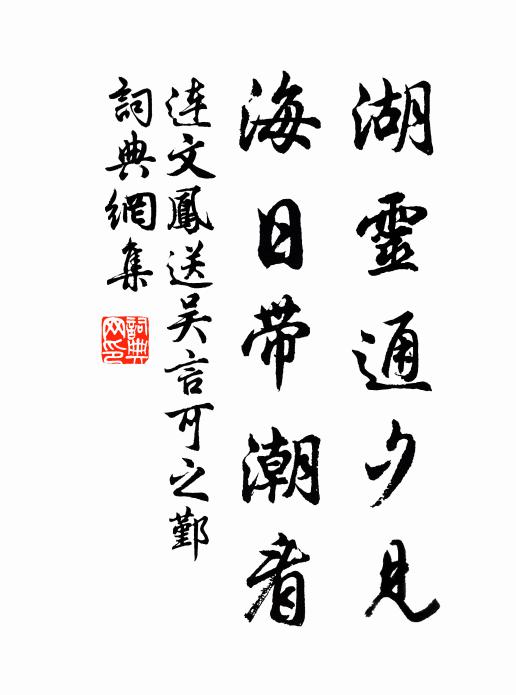 湖靈通夕見
海日帶潮看
連文鳳送吳言可之鄞
詞典網集
詞典
网印